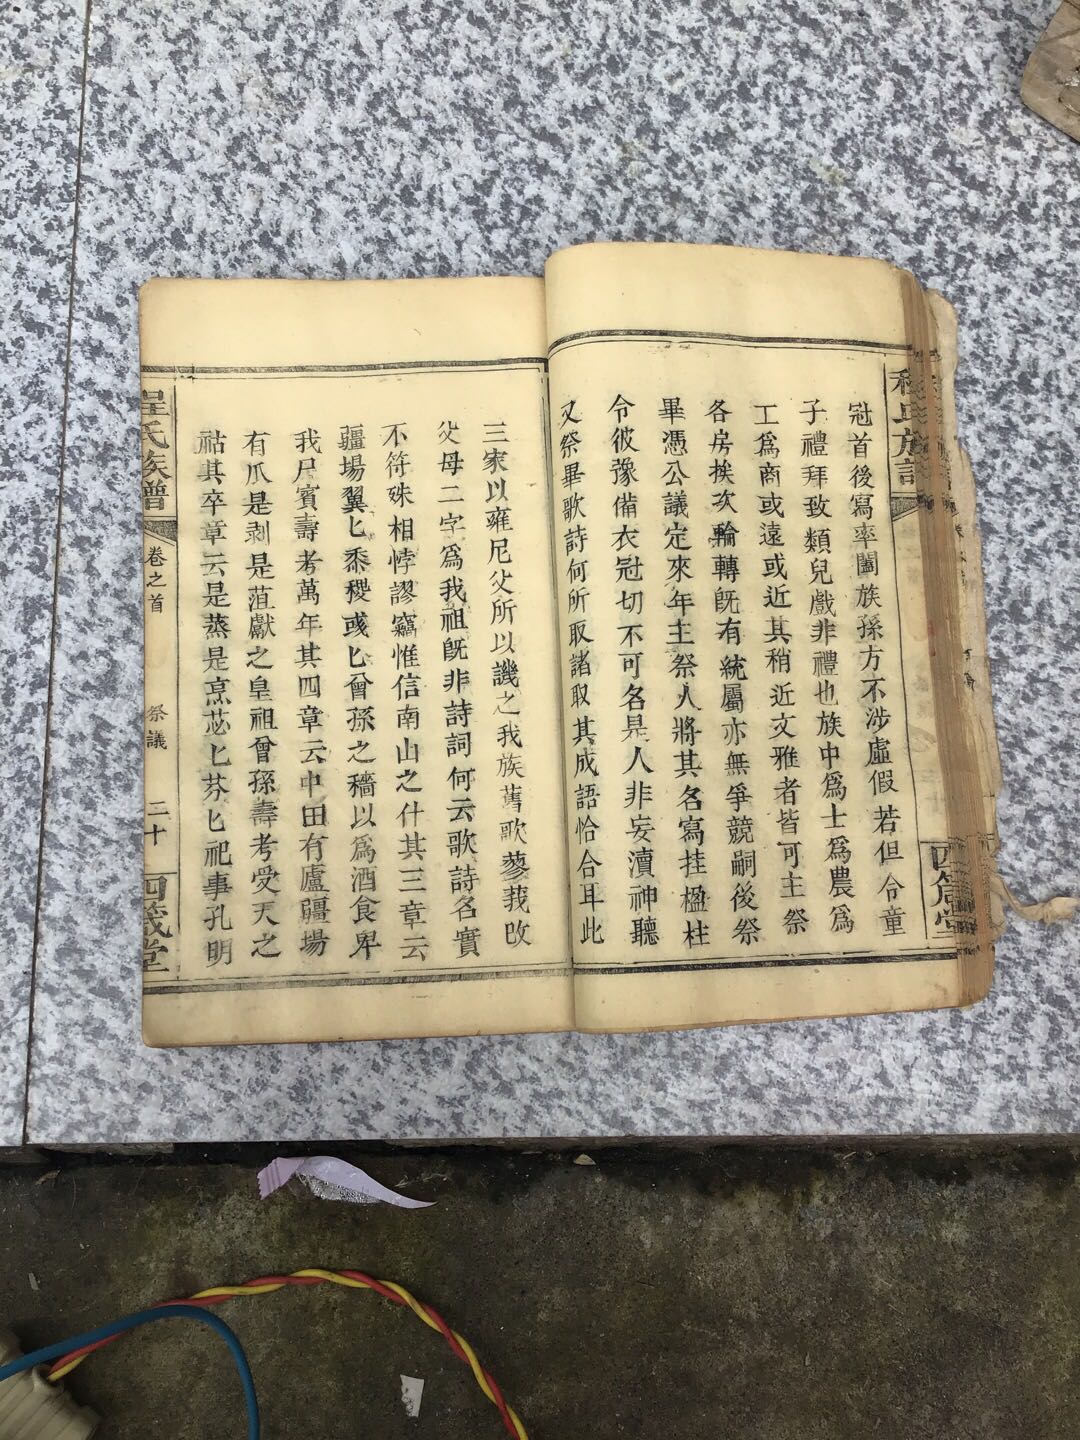 冠首後寫率闔族孫方不涉虛假若但令童
子禮拜致類兒戲非禮也族中爲士爲農爲
工爲商或遠或近其稍近文雅者皆可主祭
各房挨次輪轉旣有統屬亦無爭競嗣後祭
畢憑公議定來年主祭人將其名寫挂楹柱
令彼豫備衣冠切不可各是人非妄瀆神聽
又祭畢歌詩何所取諸取其成語恰合耳此
三家以雍尼父所以譏之我族舊歌蓼莪改
父母二字爲我祖旣非詩詞何云歌詩名實
不符殊相悖謬竊惟信南山之什其三章云
疆場翼匕黍稷彧匕曾孫之穡以爲酒食畀
我尸賓壽考萬年其四章云中田有廬疆場
有瓜是剥是菹獻之皇祖曾孫壽考受天之
祜其卒章云是蒸是烹苾匕芬匕祀事孔明
程氏族譜
卷之首
祭議
二十
四箴堂